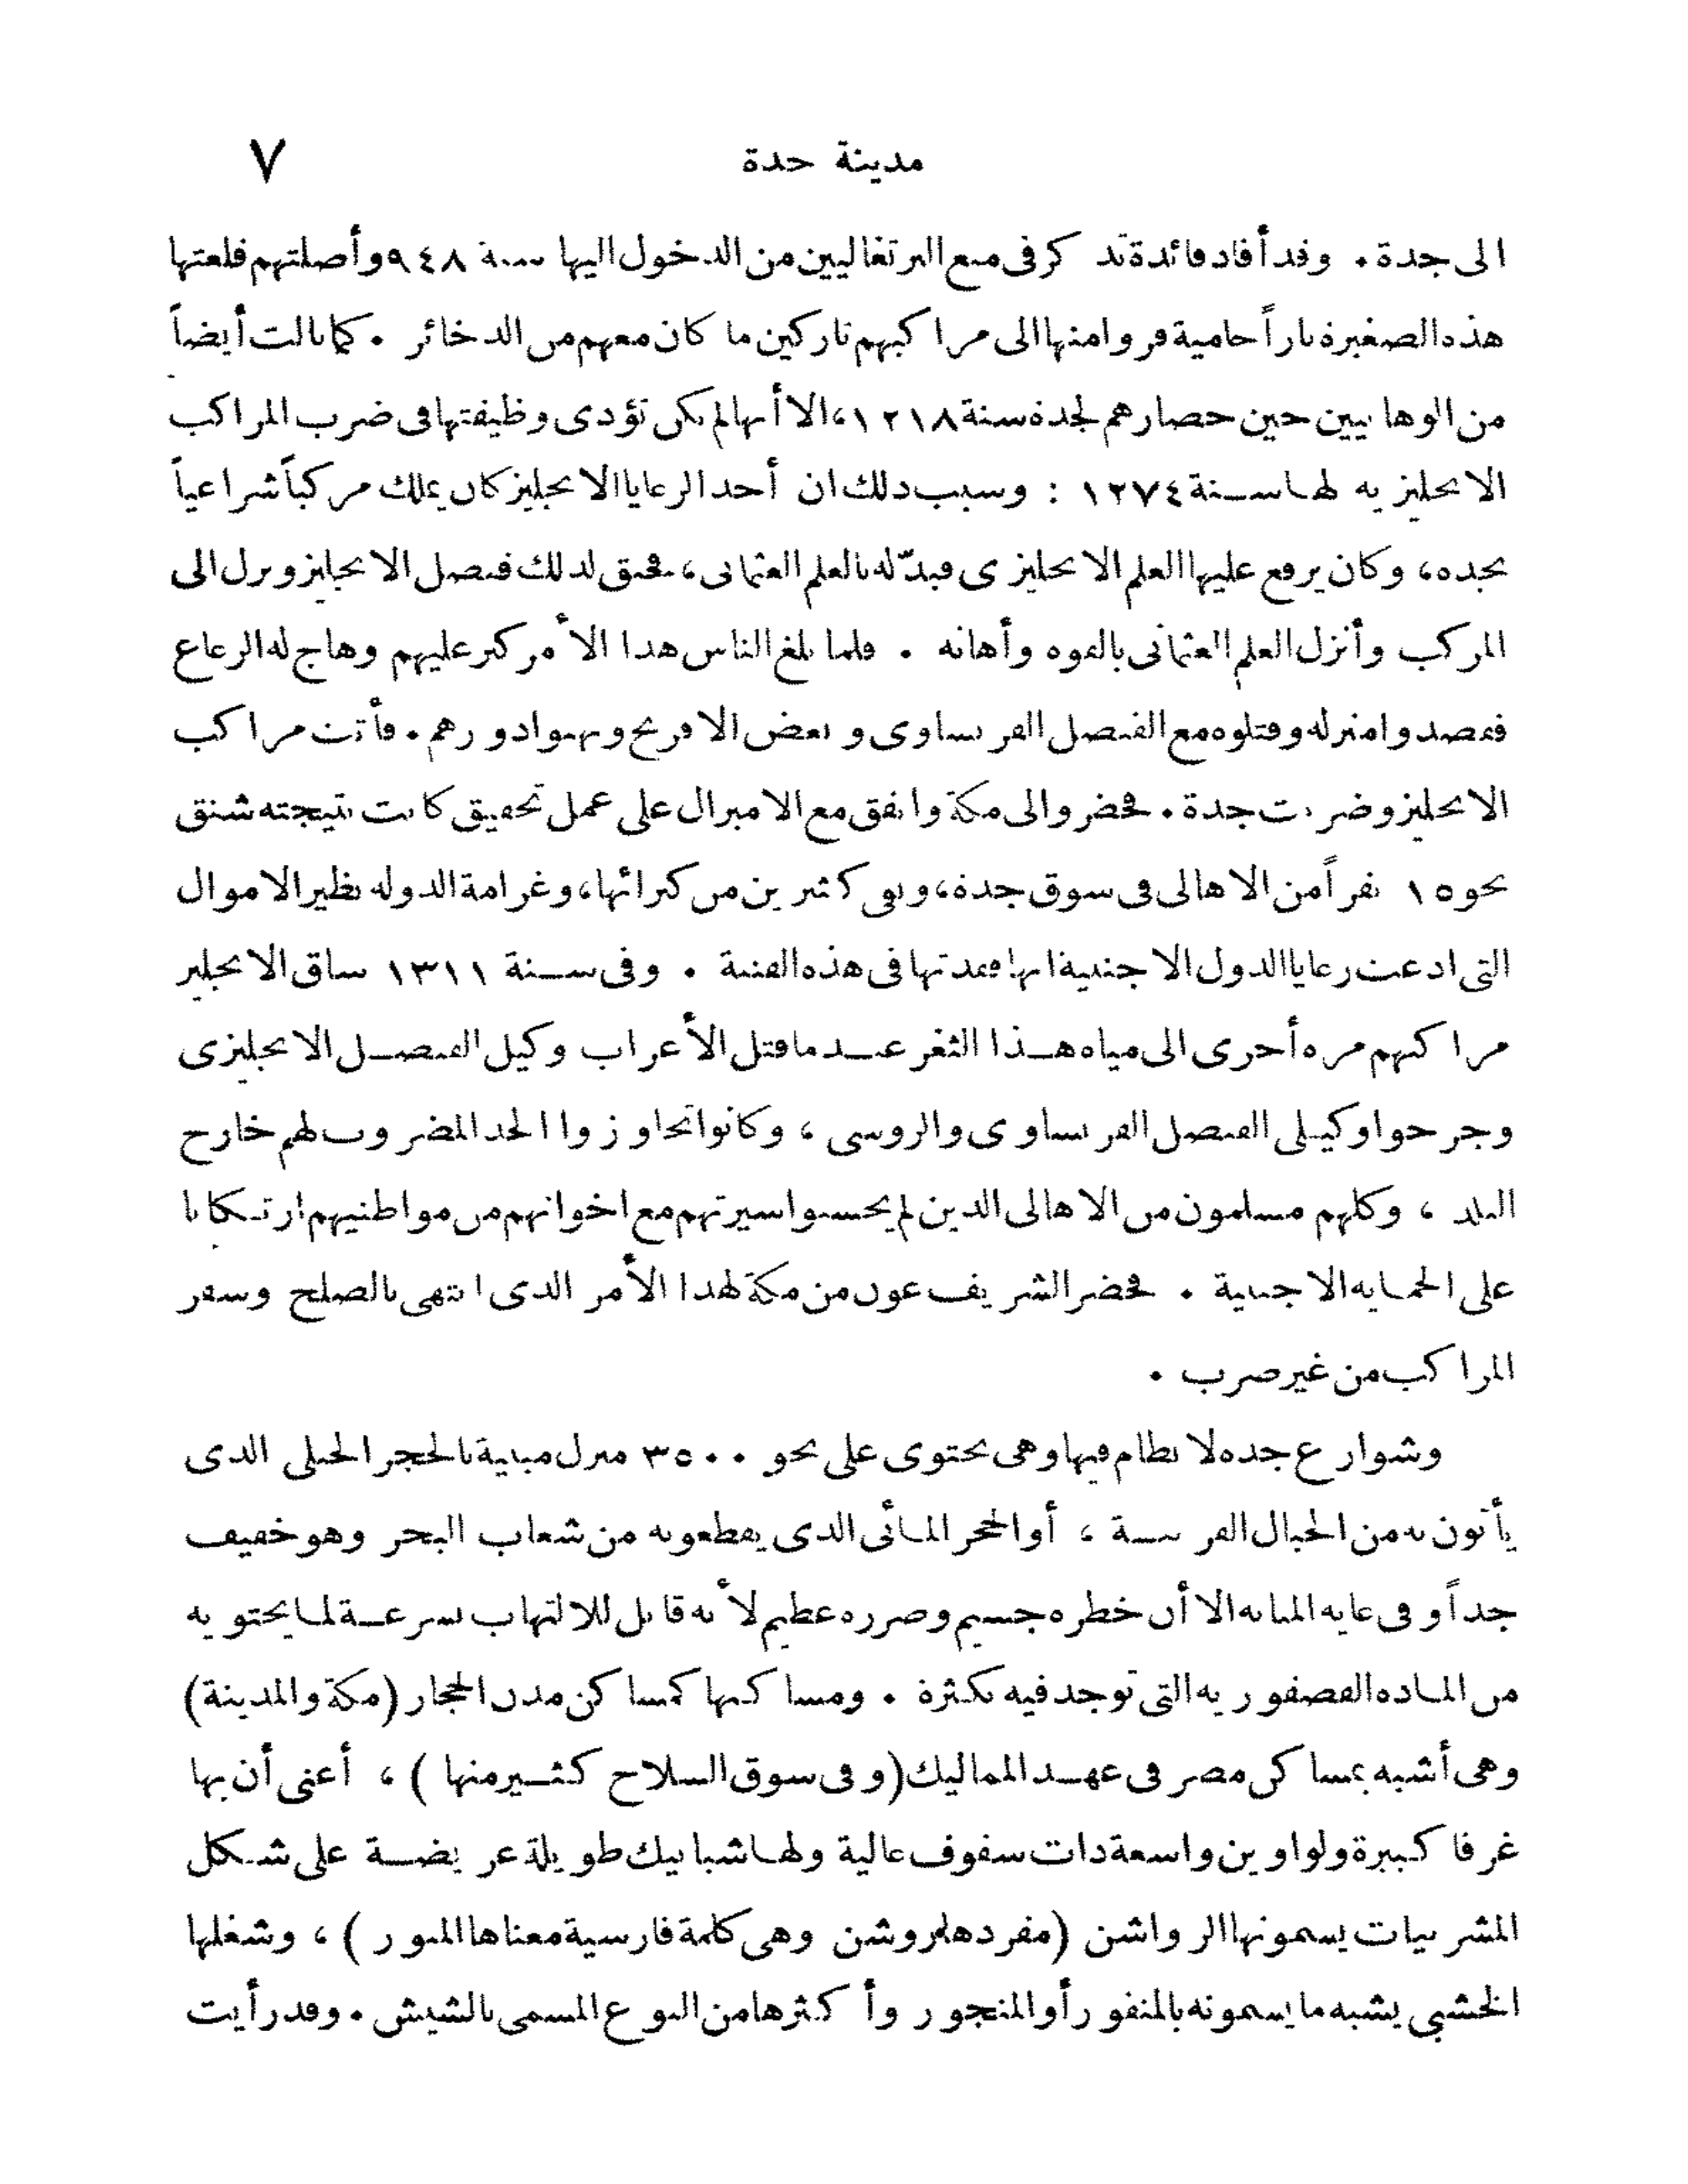 مدينة جدة ٧
الى جدة . وقد أفاد فائدة تذكر فى منع البرتغاليين من الدخول اليها سنة ٩٤٨ وأصلتهم قلعتها
هذه الصغيرة ناراً حامية فروا منها الى مراكبهم تاركين ما كان معهم من الذخائر . كما نالت أيضاً
من الوهابيين حين حصارهم لجدة سنة ١٢١٨، الا أنها لم تكن تؤدى وظيفتها فى ضرب المراكب
الانجليزيه لها سنة ١٢٧٤ : وسبب ذلك ان أحد الرعايا الانجليز كان يملك مركباً شراعياً
بجده، وكان يرفع عليها العلم الانجليزى فبدّله بالعلم العثمانى، فحنق لذلك قنصل الانجليز ونزل الى
المركب وأنزل العلم العثمانى بالقوه وأهانه . فلما بلغ الناس هذا الأمر كبر عليهم وهاج له الرعاع
فقصدوا منزله وقتلوه مع القنصل الفرنساوى وبعض الافرنج ونهبوا دورهم . فأتت مراكب
الانجليز وضربت جدة . فحضر والى مكة واتفق مع الاميرال على عمل تحقيق كانت نتيجته شنق
نحو ١٥ نفراً من الاهالى فى سوق جدة، ونفى كثيرين من كبرائها، وغرامة الدوله نظير الاموال
التى ادعت رعايا الدول الاجنبية انها فقدتها فى هذه الفتنة . وفى سنة ١٣١١ ساق الانجليز
مراكبهم مره أخرى الى مياه هذا الثغر عند ما قتل الأعراب وكيل القنصل الانجليزى
وجرحوا وكيلى القنصل الفرنساوى والروسى ، وكانوا تجاوزوا الحد المضروب لهم خارج
البلد ، وكلهم مسلمون من الاهالى الذين لم يحسنوا سيرتهم مع اخوانهم من مواطنيهم ارتكانا
على الحمايه الاجنبية . فحضر الشريف عون من مكة لهذا الأمر الذى انتهى بالصلح وسفر
المراكب من غير ضرب .
وشوارع جده لا نظام فيها وهى تحتوى على نحو ٣٥٠٠ منزل مبنية بالحجر الجبلى الذى
يأتون به من الجبال القريبة ، أو الحجر المائى الذى يقطعونه من شعاب البحر وهو خفيف
جداً وفى غايه المتانه الا أن خطره جسيم وضرره عظيم لأنه قابل للالتهاب بسرعة لما يحتويه
من الماده الفصفوريه التى توجد فيه بكثرة . ومساكنها كمساكن مدن الحجاز (مكة والمدينة)
وهى أشبه بمساكن مصر فى عهد المماليك (وفى سوق السلاح كثير منها ) ، أعنى أن بها
غرفا كبيرة ولواوين واسعة ذات سقوف عالية ولها شبابيك طويلة عريضة على شكل
المشربيات يسمونها الرواشن (مفردها روشن وهى كلمة فارسية معناها المنور ) ، وشغلها
الخشبى يشبه ما يسمونه بالمنفور أو المنجور وأكثرها من النوع المسمى بالشيش . وقد رأيت